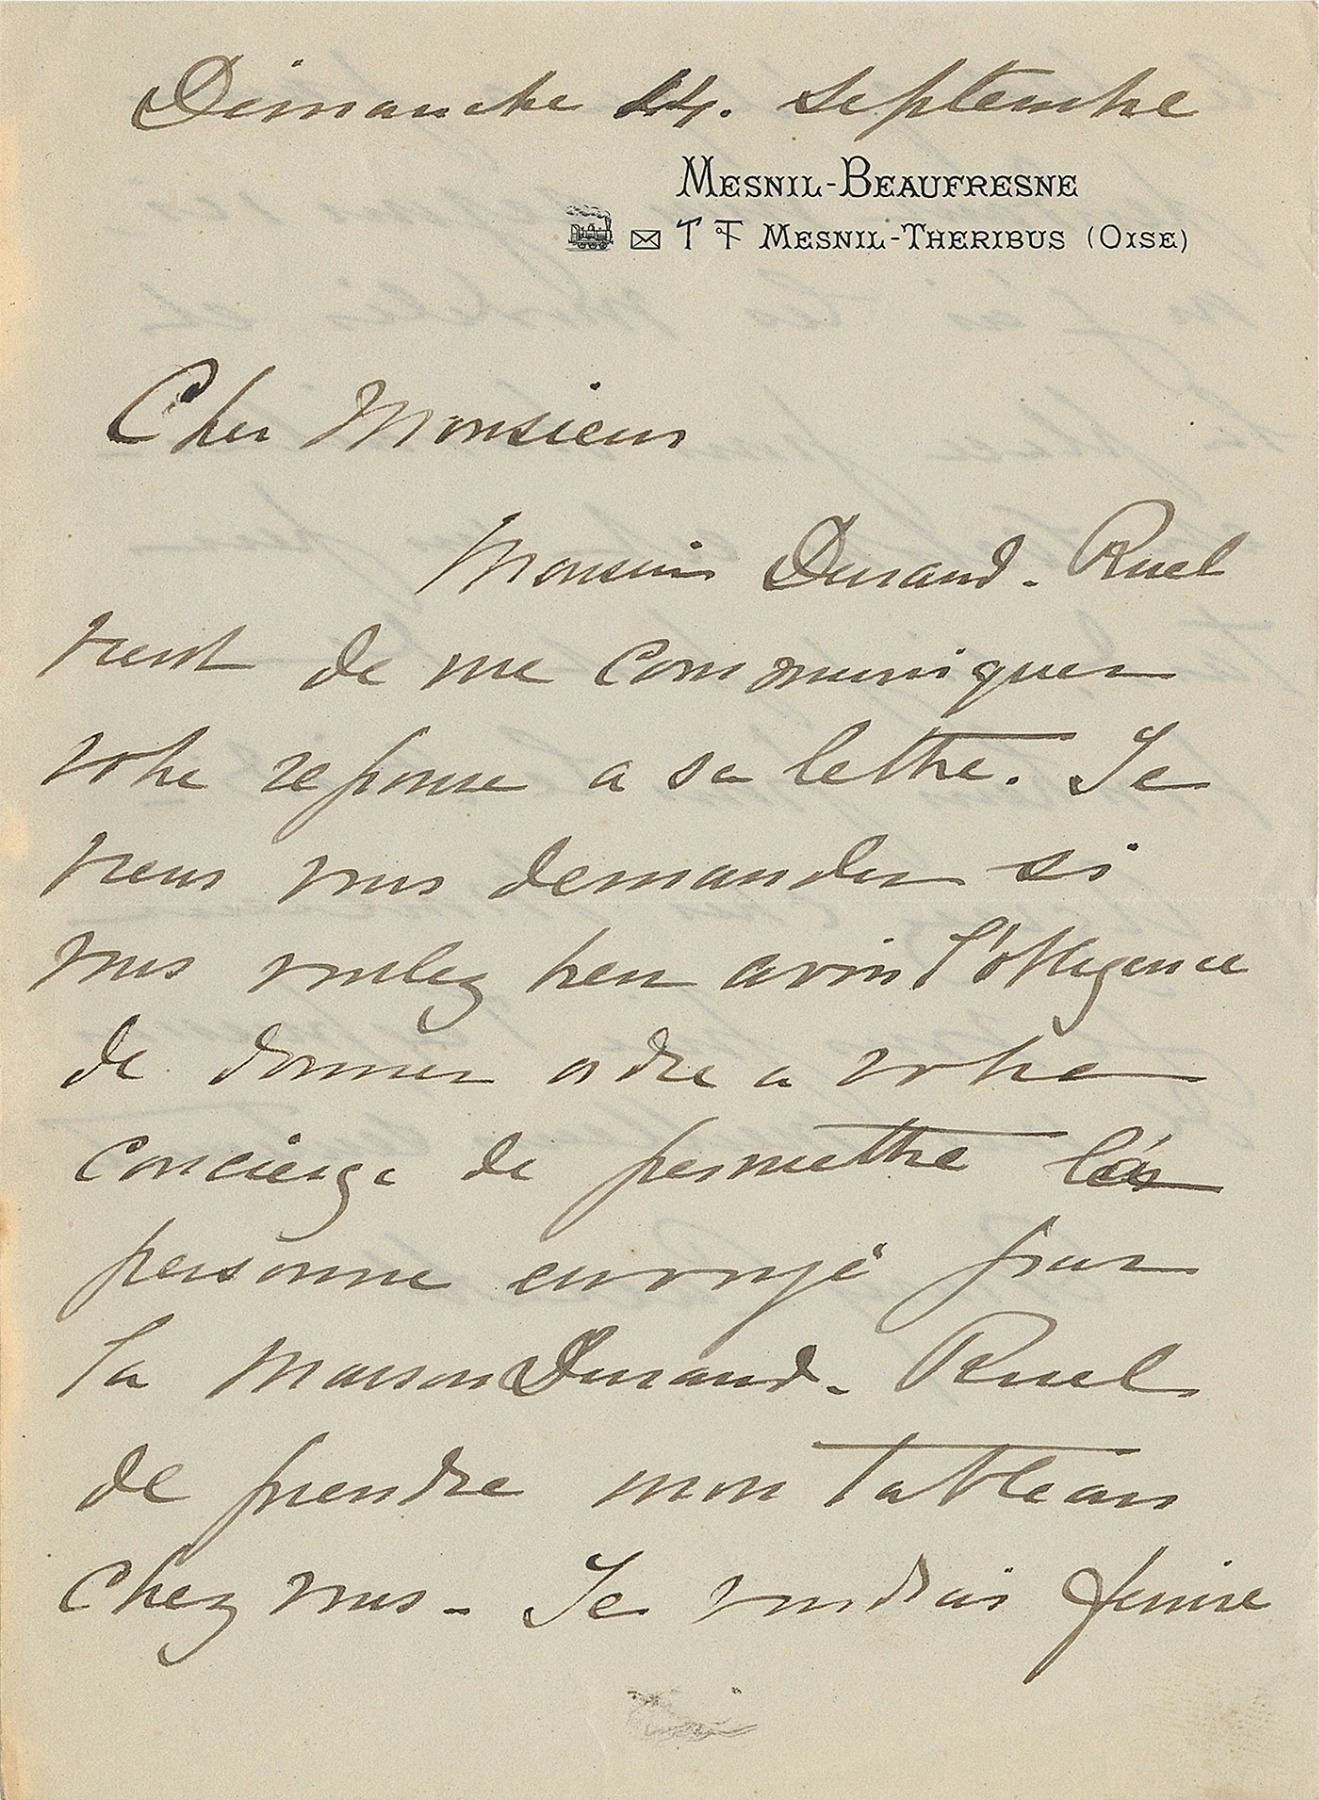 Dimanche 24. Septembre
MESNIL-BEAUFRESNE
T T MESNIL-THERIBUS (OISE)
Cher Monsieur
Monsieur Durand-Ruel
vient de me communiquer
votre reponse a sa lettre. Je
viens vous demander si
vous voulez bien avoir l'obligence
de donner ordre a votre
concierge de permettre
personne envoyé par
la maison Durand-Ruel
de prendre mon tableau
chez vous - Je voudrais finire